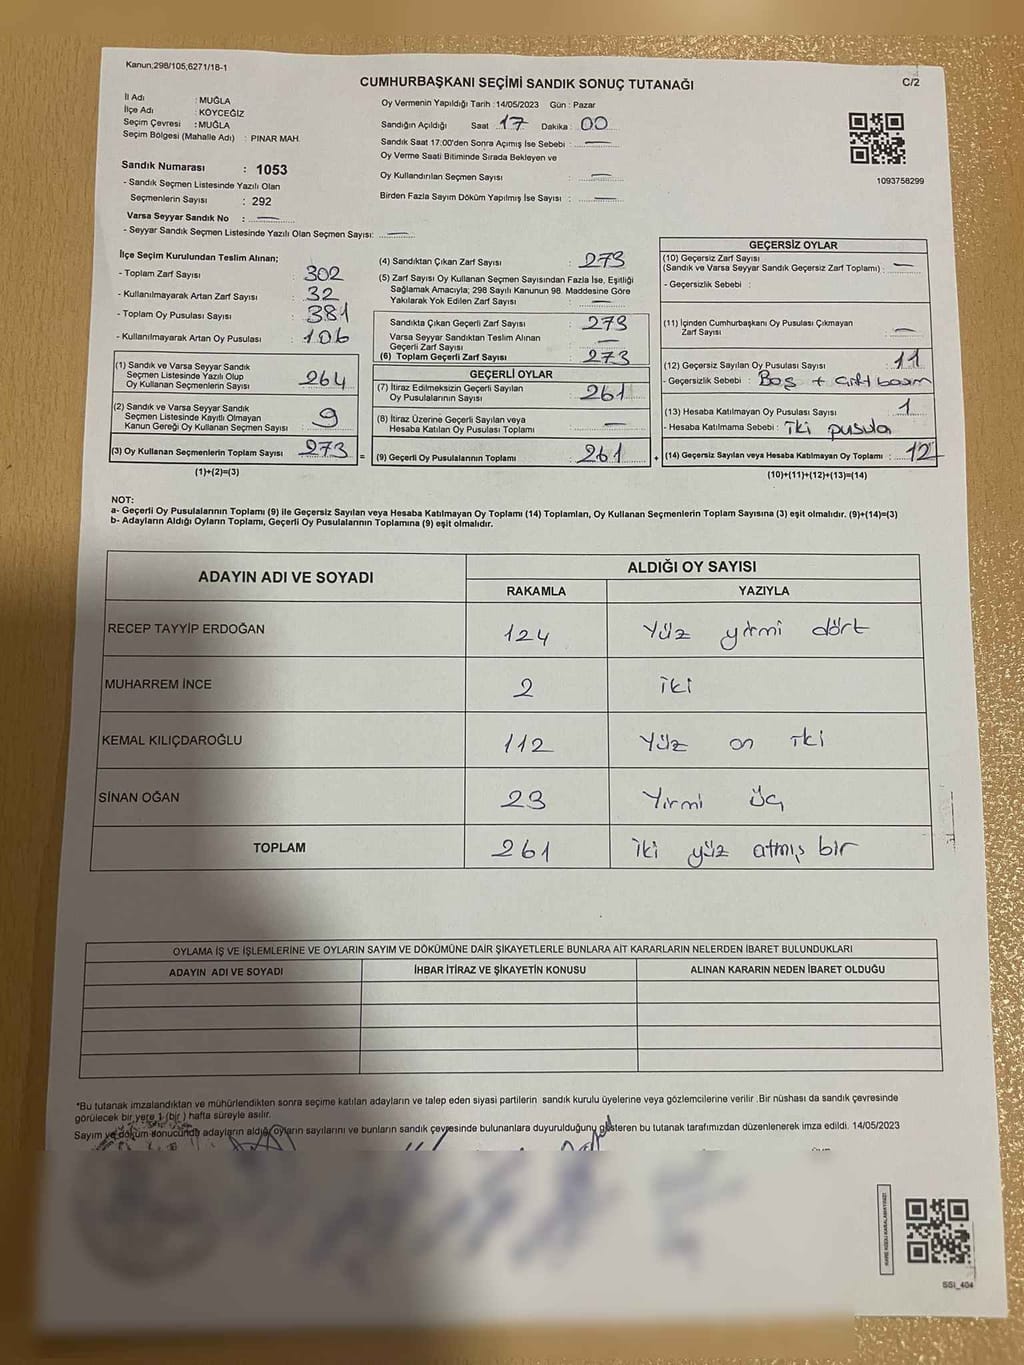 Kanun;298/105;6271/18-1
CUMHURBAŞKANI SEÇİMİ SANDIK SONUÇ TUTANAĞI
C/2
İl Adı : MUĞLA
İlçe Adı : KÖYCEĞİZ
Seçim Çevresi : MUĞLA
Seçim Bölgesi (Mahalle Adı) : PINAR MAH.
Sandık Numarası : 1053
- Sandık Seçmen Listesinde Yazılı Olan
Seçmenlerin Sayısı : 292
Varsa Seyyar Sandık No : —
- Seyyar Sandık Seçmen Listesinde Yazılı Olan Seçmen Sayısı: —
Oy Vermenin Yapıldığı Tarih :14/05/2023 Gün : Pazar
Sandığın Açıldığı Saat 17 Dakika : 00
Sandık Saat 17:00'den Sonra Açımış İse Sebebi : —
Oy Verme Saati Bitiminde Sırada Bekleyen ve
Oy Kullandırılan Seçmen Sayısı : —
Birden Fazla Sayım Döküm Yapılmış İse Sayısı : —
1093758299
İlçe Seçim Kurulundan Teslim Alınan;
- Toplam Zarf Sayısı : 302
- Kullanılmayarak Artan Zarf Sayısı : 32
- Toplam Oy Pusulası Sayısı : 381
- Kullanılmayarak Artan Oy Pusulası : 106
(1) Sandık ve Varsa Seyyar Sandık
Seçmen Listesinde Yazılı Olup
Oy Kullanan Seçmenlerin Sayısı : 264
(2) Sandık ve Varsa Seyyar Sandık
Seçmen Listesinde Kayıtlı Olmayan
Kanun Gereği Oy Kullanan Seçmen Sayısı : 9
(3) Oy Kullanan Seçmenlerin Toplam Sayısı : 273
(1)+(2)=(3)
(4) Sandıktan Çıkan Zarf Sayısı : 273
(5) Zarf Sayısı Oy Kullanan Seçmen Sayısından Fazla İse, Eşitliği
Sağlamak Amacıyla; 298 Sayılı Kanunun 98. Maddesine Göre
Yakılarak Yok Edilen Zarf Sayısı : —
Sandıkta Çıkan Geçerli Zarf Sayısı : 273
Varsa Seyyar Sandıktan Teslim Alınan
Geçerli Zarf Sayısı : —
(6) Toplam Geçerli Zarf Sayısı : 273
GEÇERLİ OYLAR
(7) İtiraz Edilmeksizin Geçerli Sayılan
Oy Pusulalarının Sayısı : 261
(8) İtiraz Üzerine Geçerli Sayılan veya
Hesaba Katılan Oy Pusulası Toplamı : —
(9) Geçerli Oy Pusulalarının Toplamı : 261
GEÇERSİZ OYLAR
(10) Geçersiz Zarf Sayısı
(Sandık ve Varsa Seyyar Sandık Geçersiz Zarf Toplamı) : —
- Geçersizlik Sebebi :
(11) İçinden Cumhurbaşkanı Oy Pusulası Çıkmayan
Zarf Sayısı : —
(12) Geçersiz Sayılan Oy Pusulası Sayısı : 11
- Geçersizlik Sebebi : Boş + çift basım
(13) Hesaba Katılmayan Oy Pusulası Sayısı : 1
- Hesaba Katılmama Sebebi : iki pusula
(14) Geçersiz Sayılan veya Hesaba Katılmayan Oy Toplamı : 12
(10)+(11)+(12)+(13)=(14)
NOT:
a- Geçerli Oy Pusulalarının Toplamı (9) ile Geçersiz Sayılan veya Hesaba Katılmayan Oy Toplamı (14) Toplamları, Oy Kullanan Seçmenlerin Toplam Sayısına (3) eşit olmalıdır. (9)+(14)=(3)
b- Adayların Aldığı Oyların Toplamı, Geçerli Oy Pusulalarının Toplamına (9) eşit olmalıdır.
ADAYIN ADI VE SOYADI
ALDIĞI OY SAYISI
RAKAMLA YAZIYLA
RECEP TAYYİP ERDOĞAN 124 Yüz yirmi dört
MUHARREM İNCE 2 iki
KEMAL KILIÇDAROĞLU 112 Yüz on iki
SİNAN OĞAN 23 Yirmi üç
TOPLAM 261 iki yüz atmış bir
OYLAMA İŞ VE İŞLEMLERİNE VE OYLARIN SAYIM VE DÖKÜMÜNE DAİR ŞİKAYETLERLE BUNLARA AİT KARARLARIN NELERDEN İBARET BULUNDUKLARI
ADAYIN ADI VE SOYADI İHBAR İTİRAZ VE ŞİKAYETİN KONUSU ALINAN KARARIN NEDEN İBARET OLDUĞU
*Bu tutanak imzalandıktan ve mühürlendikten sonra seçime katılan adayların ve talep eden siyasi partilerin sandık kurulu üyelerine veya gözlemcilerine verilir .Bir nüshası da sandık çevresinde
görülecek bir yere 1 (bir ) hafta süreyle asılır.
Sayım ve döküm sonucunda adayların aldığı oyların sayılarını ve bunların sandık çevresinde bulunanlara duyurulduğunu gösteren bu tutanak tarafımızdan düzenlenerek imza edildi. 14/05/2023
KARE KODU KARALAMAYINIZ!
SSI_404